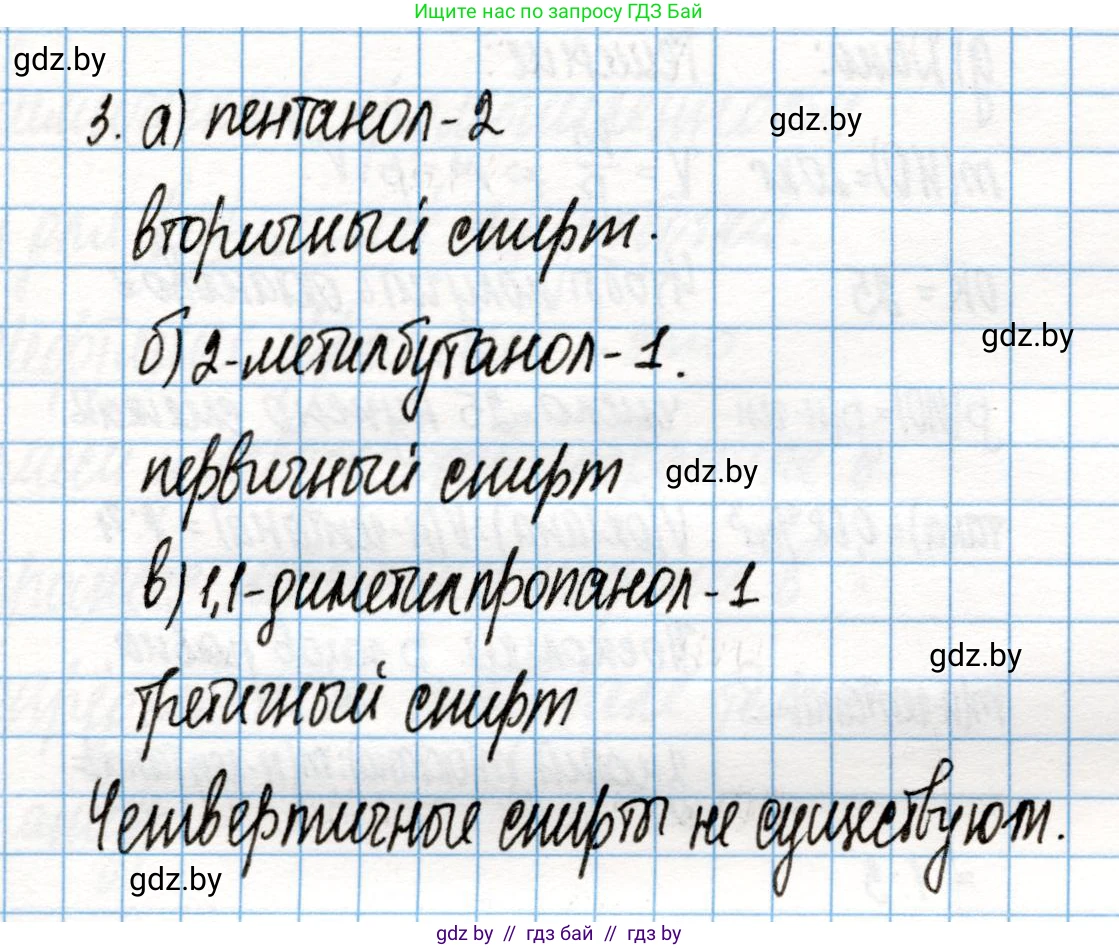 Ищите нас по запросу ГДЗ Бай
gdz.by
3. а) пентанол-2
gdz.by
вторичный спирт.
б) 2-метилбутанол-1.
gdz.by
первичный спирт
gdz.by
в) 1,1-диметилпропанол-1
gdz.by
третичный спирт
Четвертичные спирты не существуют.
gdz.by
gdz.by // гдз бай // gdz.by